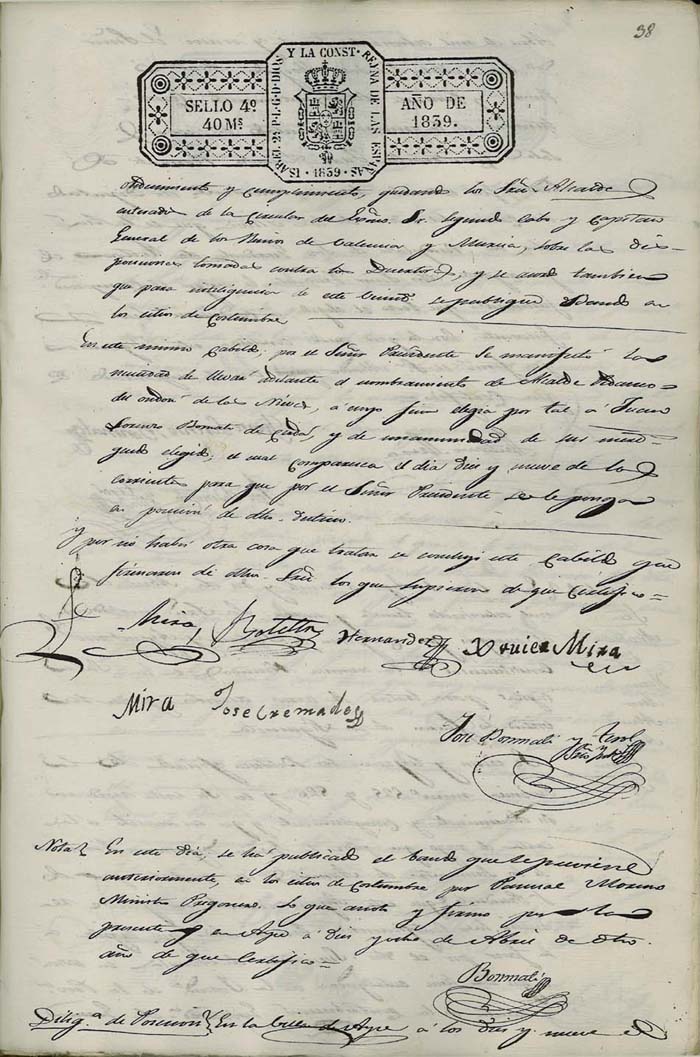 38
ISABEL 2ª P.L.G.D.DIOS Y LA CONST. REYNA DE LAS ESPAÑAS
SELLO 4º
40 Mˢ
AÑO DE
1839.
1839
y cumplimiento, quedando los Sres. Alcalde
enterados de la Circular del Exmo. Sr. Segundo Cabo y Capitan
General de los Reinos de Valencia y Murcia, sobre las dis-
posiciones tomadas contra los ; y se acordó tambien
que para inteligencia de este se publique Bando en
los sitios de costumbre
En este mismo Cabildo, por el Señor Presidente se manifestó la
necesidad de llevar adelante el nombramiento de Alcalde Pedaneo
del de las Nieves, á cuyo fin elegia por tal á
de , y de unanimidad de sus
quedó elegido, el cual comparezca el dia Diez y nueve de los
corrientes para que por el Señor Presidente se le ponga
en posecion de dho. destino.
Y por no haber otra cosa que tratar se concluyó este Cabildo que
firmaron de dhos. Sres. los que supieron de que Certifico =
Mira Botella Hernandez Xavier Mira
Mira Jose Cremades
Jose Bonmati y
Nota En este dia, se há publicado el bando que se previene
anteriormente, en los sitios de Costumbre por Pascual Moreno
Ministro Pregonero. Lo que anoto y firmo por la
presente en Aspe á Diez y ocho de Abril de dho.
año de que Certifico =
Bonmati
Diligª. de Posecion En la Villa de Aspe á los Diez y nueve